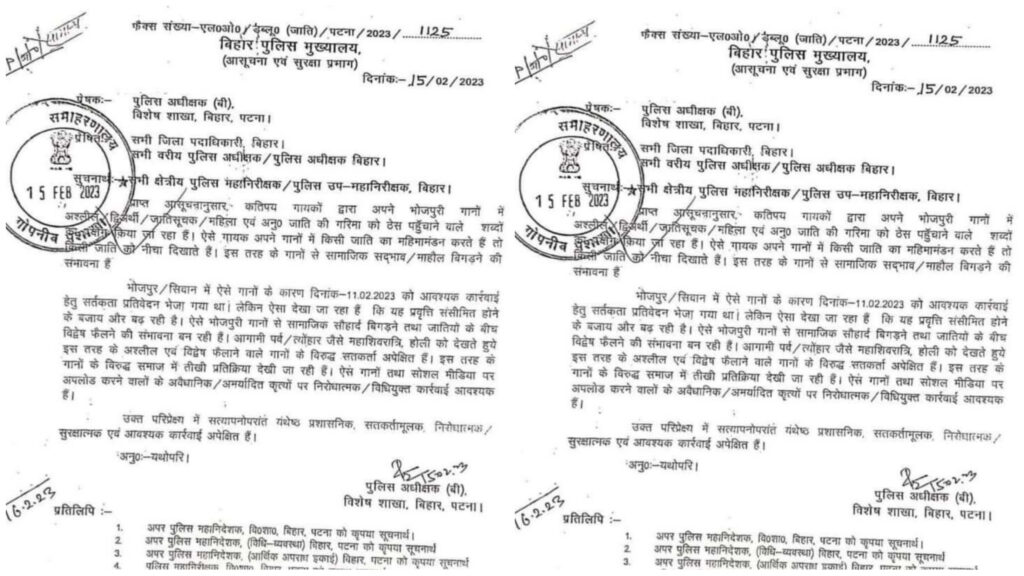 फैक्स संख्या–एल०ओ०/डब्लू० (जाति)/पटना/2023/ 1125
बिहार पुलिस मुख्यालय,
(आसूचना एवं सुरक्षा प्रभाग)
दिनांकः–15/02/2023
प्रेषकः–
पुलिस अधीक्षक (बी),
विशेष शाखा, बिहार, पटना।
प्रेषितः
सभी जिला पदाधिकारी, बिहार।
सभी वरीय पुलिस अधीक्षक/पुलिस अधीक्षक बिहार।
सूचनार्थः– सभी क्षेत्रीय पुलिस महानिरीक्षक/पुलिस उप–महानिरीक्षक, बिहार।
समाहरणालय
15 FEB 2023
गोपनीय प्रशाखा
प्राप्त आसूचनानुसार, कतिपय गायकों द्वारा अपने भोजपुरी गानों में
अश्लील/द्विअर्थी/जातिसूचक/महिला एवं अनु० जाति की गरिमा को ठेस पहुँचाने वाले शब्दों
किया जा रहा हैं। ऐसे गायक अपने गानों में किसी जाति का महिमामंडन करते हैं तो
किसी जाति को नीचा दिखाते हैं। इस तरह के गानों से सामाजिक सद्भाव/माहौल बिगड़ने की
संभावना हैं
भोजपुर/सिवान में ऐसे गानों के कारण दिनांक–11.02.2023 को आवश्यक कार्रवाई
हेतु सर्तकता प्रतिवेदन भेजा गया था। लेकिन ऐसा देखा जा रहा हैं कि यह प्रवृत्ति संसीमित होने
के बजाय और बढ़ रही है। ऐसे भोजपुरी गानों से सामाजिक सौहार्द बिगड़ने तथा जातियों के बीच
विद्वेष फैलने की संभावना बन रही हैं। आगामी पर्व/त्योंहार जैसे महाशिवरात्रि, होली को देखते हुये
इस तरह के अश्लील एवं विद्वेष फैलाने वाले गानों के विरुद्ध सतकर्ता अपेक्षित हैं। इस तरह के
गानों के विरुद्ध समाज में तीखी प्रतिक्रिया देखी जा रही हैं। ऐसे गानों तथा सोशल मीडिया पर
अपलोड करने वालों के अवैधानिक/अमर्यादित कृत्यों पर निरोधात्मक/विधियुक्त कार्रवाई आवश्यक
हैं।
उक्त परिप्रेक्ष्य में सत्यापनोपरांत यंथेष्ठ प्रशासनिक, सतकर्तामूलक, निरोधात्मक/
सुरक्षात्मक एवं आवश्यक कार्रवाई अपेक्षित हैं।
अनु०ः–यथोपरि।
पुलिस अधीक्षक (बी),
विशेष शाखा, बिहार, पटना।
16.2.23
प्रतिलिपि :–
1. अपर पुलिस महानिदेशक, वि०शा०, बिहार, पटना को कृपया सूचनार्थ।
2. अपर पुलिस महानिदेशक, (विधि–व्यवस्था) बिहार, पटना को कृपया सूचनार्थ
3. अपर पुलिस महानिदेशक, (आर्थिक अपराध इकाई) बिहार, पटना को कृपया सूचनार्थ
4. पुलिस महानिरीक्षक, वि०शा०, बिहार, पटना को कृपया सूचनार्थ
फैक्स संख्या–एल०ओ०/डब्लू० (जाति)/पटना/2023/ 1125
बिहार पुलिस मुख्यालय,
(आसूचना एवं सुरक्षा प्रभाग)
दिनांकः–15/02/2023
प्रेषकः–
पुलिस अधीक्षक (बी),
विशेष शाखा, बिहार, पटना।
प्रेषितः
सभी जिला पदाधिकारी, बिहार।
सभी वरीय पुलिस अधीक्षक/पुलिस अधीक्षक बिहार।
सूचनार्थः– सभी क्षेत्रीय पुलिस महानिरीक्षक/पुलिस उप–महानिरीक्षक, बिहार।
समाहरणालय
15 FEB 2023
गोपनीय प्रशाखा
प्राप्त आसूचनानुसार, कतिपय गायकों द्वारा अपने भोजपुरी गानों में
अश्लील/द्विअर्थी/जातिसूचक/महिला एवं अनु० जाति की गरिमा को ठेस पहुँचाने वाले शब्दों
किया जा रहा हैं। ऐसे गायक अपने गानों में किसी जाति का महिमामंडन करते हैं तो
किसी जाति को नीचा दिखाते हैं। इस तरह के गानों से सामाजिक सद्भाव/माहौल बिगड़ने की
संभावना हैं
भोजपुर/सिवान में ऐसे गानों के कारण दिनांक–11.02.2023 को आवश्यक कार्रवाई
हेतु सर्तकता प्रतिवेदन भेजा गया था। लेकिन ऐसा देखा जा रहा हैं कि यह प्रवृत्ति संसीमित होने
के बजाय और बढ़ रही है। ऐसे भोजपुरी गानों से सामाजिक सौहार्द बिगड़ने तथा जातियों के बीच
विद्वेष फैलने की संभावना बन रही हैं। आगामी पर्व/त्योंहार जैसे महाशिवरात्रि, होली को देखते हुये
इस तरह के अश्लील एवं विद्वेष फैलाने वाले गानों के विरुद्ध सतकर्ता अपेक्षित हैं। इस तरह के
गानों के विरुद्ध समाज में तीखी प्रतिक्रिया देखी जा रही हैं। ऐसे गानों तथा सोशल मीडिया पर
अपलोड करने वालों के अवैधानिक/अमर्यादित कृत्यों पर निरोधात्मक/विधियुक्त कार्रवाई आवश्यक
हैं।
उक्त परिप्रेक्ष्य में सत्यापनोपरांत यंथेष्ठ प्रशासनिक, सतकर्तामूलक, निरोधात्मक/
सुरक्षात्मक एवं आवश्यक कार्रवाई अपेक्षित हैं।
अनु०ः–यथोपरि।
पुलिस अधीक्षक (बी),
विशेष शाखा, बिहार, पटना।
16.2.23
प्रतिलिपि :–
1. अपर पुलिस महानिदेशक, वि०शा०, बिहार, पटना को कृपया सूचनार्थ।
2. अपर पुलिस महानिदेशक, (विधि–व्यवस्था) बिहार, पटना को कृपया सूचनार्थ
3. अपर पुलिस महानिदेशक, (आर्थिक अपराध इकाई) बिहार, पटना को कृपया सूचनार्थ